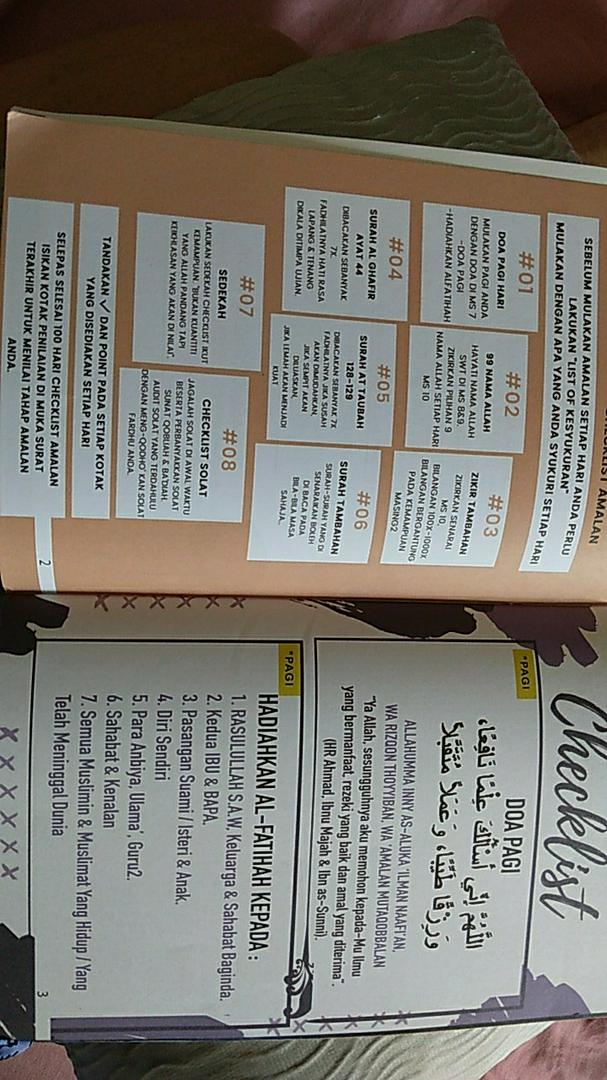 CHECKLIST AMALAN
SEBELUM MULAKAN AMALAN SETIAP HARI ANDA PERLU
LAKUKAN "LIST OF KESYUKURAN"
MULAKAN DENGAN APA YANG ANDA SYUKURI SETIAP HARI
#01
DOA PAGI HARI
MULAKAN PAGI ANDA
DENGAN DOA DI MS 7
-DOA PAGI
-HADIAHKAN ALFATIHAH
#02
99 NAMA ALLAH
HAYATI NAMA ALLAH
SWT DI MS 8&9.
ZIKIRKAN PILIHAN 9
NAMA ALLAH SETIAP HARI
MS 10
#03
ZIKIR TAMBAHAN
ZIKIRKAN SENARAI
MS 10.
BILANGAN 100X-1000X
BILANGAN BERGANTUNG
PADA KEMAMPUAN
MASING2
#04
SURAH AL GHAFIR
AYAT 44
DIBACAKAN SEBANYAK
7X.
FADHILATNYA HATI RASA
LAPANG & TENANG
DIKALA DITIMPA UJIAN.
#05
SURAH AT TAUBAH
128-129
DIBACAKAN SEBANYAK 7X
FADHILATNYA JIKA SUSAH
AKAN DIMUDAHKAN,
JIKA SEMPIT AKAN
DILUASKAN,
JIKA LEMAH AKAN MENJADI
KUAT
#06
SURAH TAMBAHAN
SURAH-SURAH YANG DI
SENARAIKAN BOLEH
DI BACA PADA
BILA-BILA MASA
SAHAJA.
#07
SEDEKAH
LAKUKAN SEDEKAH CHECKLIST IKUT
KEMAMPUAN. "BUKAN KUANTITI
YANG ALLAH PANDANG TAPI
KEIKHLASAN YANG AKAN DI NILAI".
#08
CHECKLIST SOLAT
JAGALAH SOLAT DI AWAL WAKTU
BESERTA PERBANYAKKAN SOLAT
SUNAT QOBLIAH & BA'DIAH.
AUDIT SOLAT YANG TERDAHULU
DENGAN MENG-QODHO' KAN SOLAT
FARDHU ANDA.
TANDAKAN ✓ DAN POINT PADA SETIAP KOTAK
YANG DISEDIAKAN SETIAP HARI
SELEPAS SELESAI 100 HARI CHECKLIST AMALAN
ISIKAN KOTAK PENILAIAN DI MUKA SURAT
TERAKHIR UNTUK MENILAI TAHAP AMALAN
ANDA.
2
Checklist
*PAGI
DOA PAGI
اللَّهُمَّ إِنِّي أَسْأَلُكَ عِلْمًا نَافِعًا،
وَرِزْقًا طَيِّبًا، وَعَمَلًا مُتَقَبَّلًا
ALLAHUMMA INNY AS-ALUKA 'ILMAN NAAFI'AN,
WA RIZQON THOYYIBAN, WA 'AMALAN MUTAQOBBALAN
"Ya Allah, sesungguhnya aku memohon kepada-Mu ilmu
yang bermanfaat, rezeki yang baik dan amal yang diterima".
(HR Ahmad, Ibnu Majah & Ibn as-Sunni).
*PAGI
HADIAHKAN AL-FATIHAH KEPADA :
1. RASULULLAH S.A.W, Keluarga & Sahabat Baginda.
2. Kedua IBU & BAPA.
3. Pasangan Suami / Isteri & Anak.
4. Diri Sendiri
5. Para Anbiya, Ulama', Guru2.
6. Sahabat & Kenalan
7. Semua Muslimin & Muslimat Yang Hidup / Yang
Telah Meninggal Dunia
3